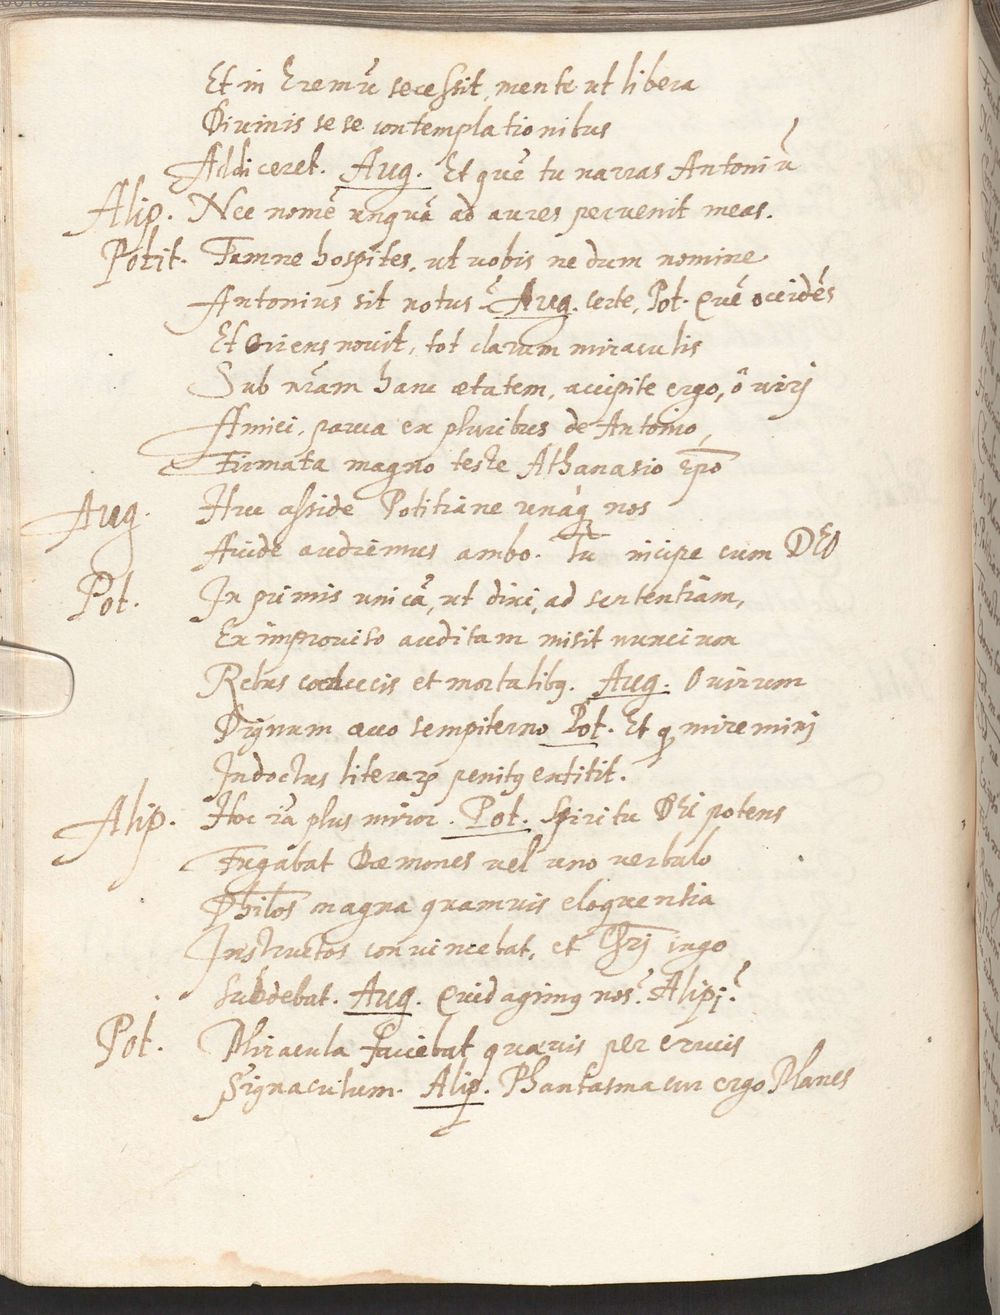 Et in Eremũ secessit, mente ut libera
Divinis se se contemplationibus
Addiceret. Aug. Et quẽ tu narras Antoniũ
Alip. Nec nomẽ unquã ad aures pervenit meas.
Potit. Tamne hospites, ut vobis nedum nomine
Antonius sit notus? Aug. certe, Pot. Quẽ occidẽs
Et Oriens novit, tot clarum miraculis
Sub nr̃am hanc ætatem, accipite ergo, ô virj
Amici, parva ex pluribus de Antonio,
Firmata magno teste Athanasio Ep̃o
Aug. Huc asside Potitiane unaq́ nos
Avide audiemus ambo. Tu incipe cum DEO
Pot. In primis unicã, ut dixi, ad sententiam,
Ex improviso auditam misit nuncium
Rebus caducis et mortalibq. Aug. O virum
Dignum ævo sempiterno Pot. Et q miremini
Indoctus literarꝝ penitq extitit.
Alip. Hoc iã plus miror. Pot. Spiritu DEI potens
Fugabat Dæmones vel uno verbulo
Philos̃ magna quamvis eloquentia
Instructos convincebat, et Chr̃j iugo
Subdebat. Aug. Quid agimq nos? Alipj?
Pot. Miracula faciebat quævis per crucis
Signaculum. Alip. Phantasma cur ergo Manes